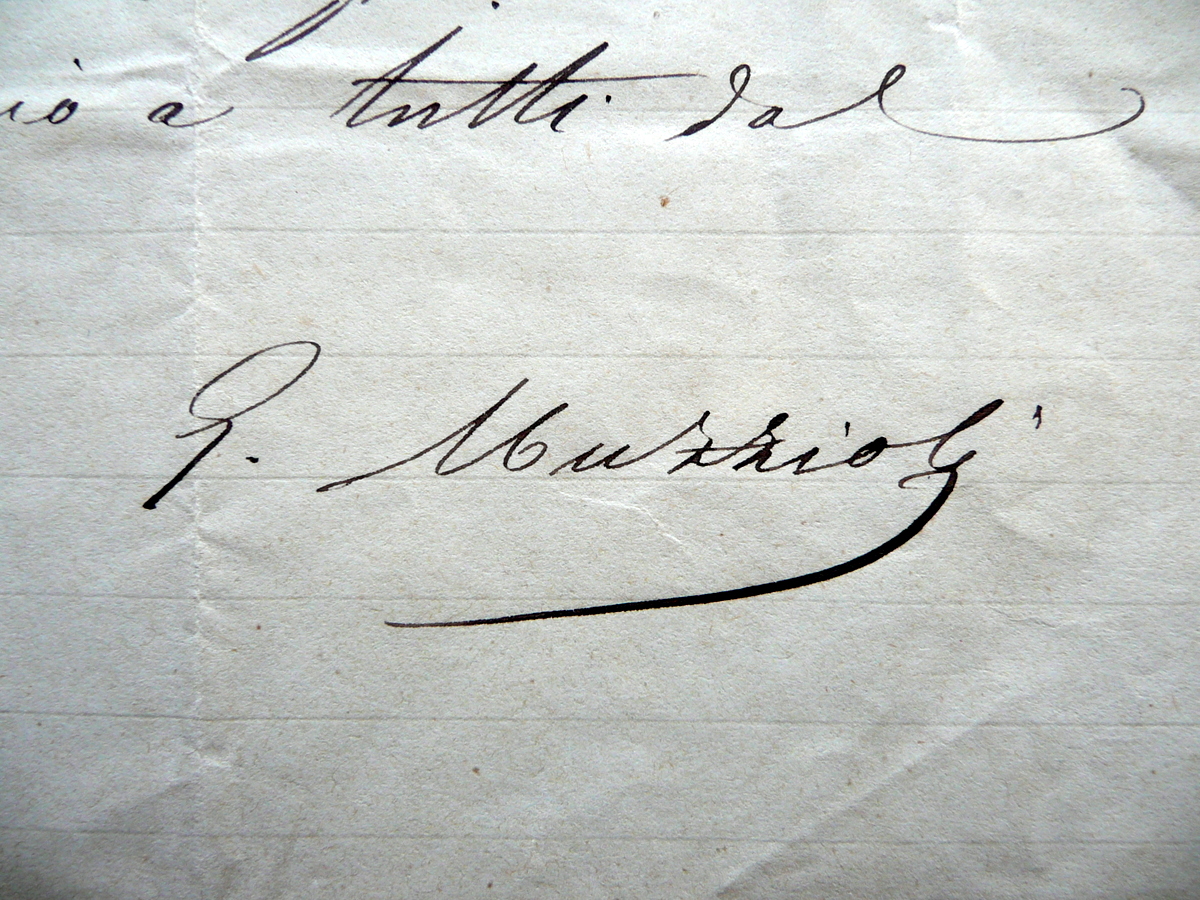 a tutti dal
G. Muzzioli